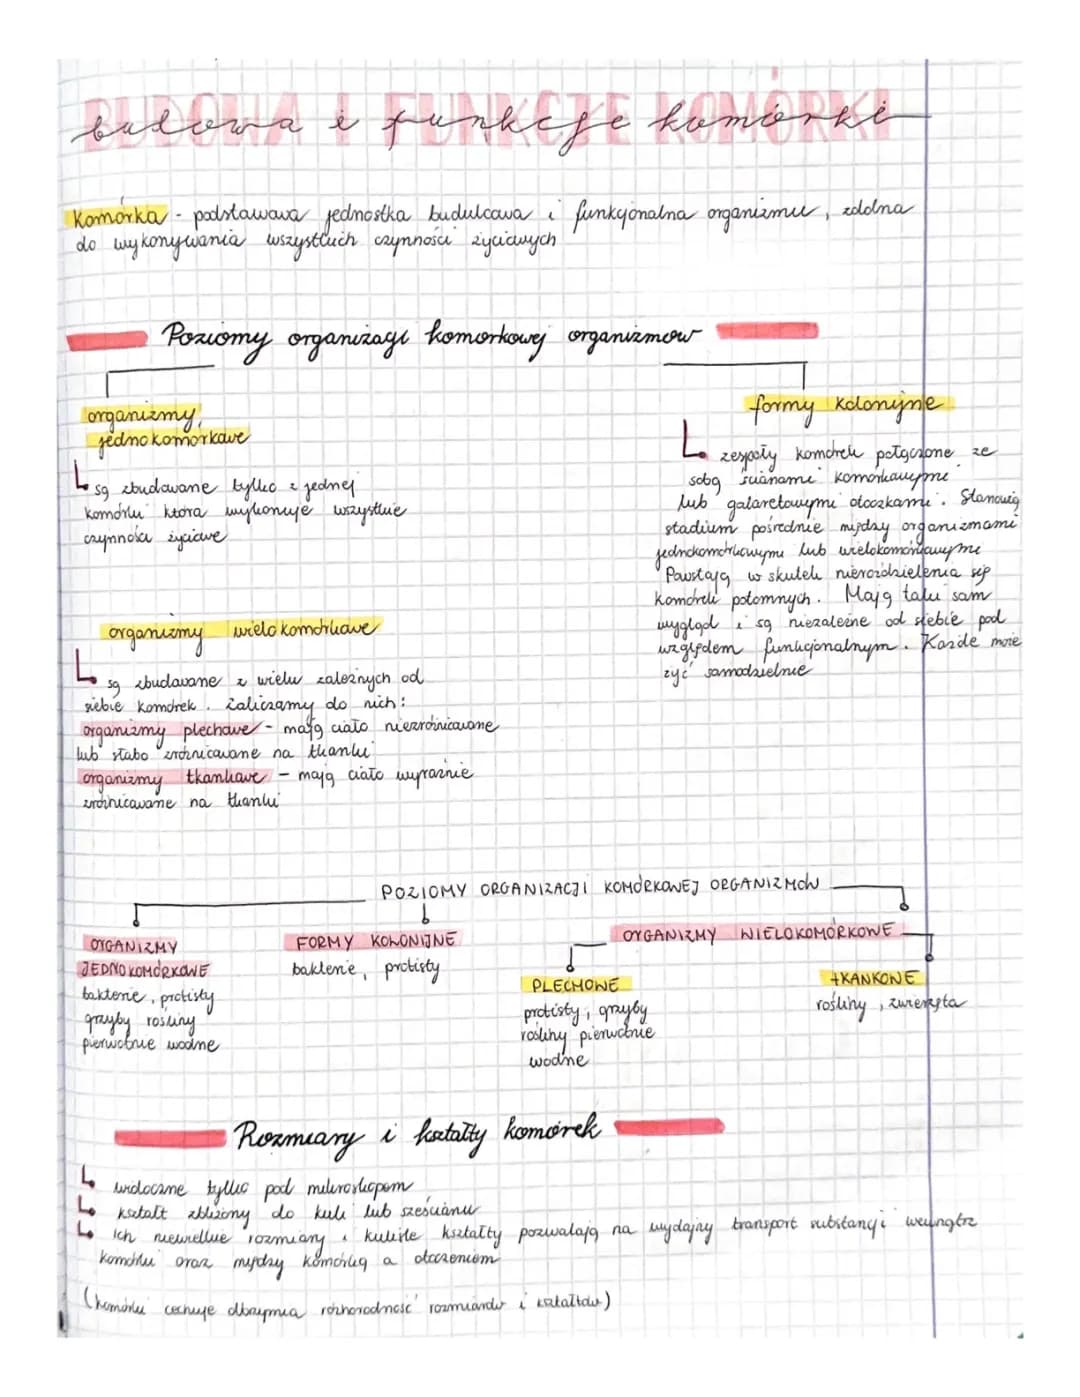 BUDOWA I FUNKCJE KOMÓRKI
budowa i funkcje komórki
Komórka - podstawowa jednostka budulcowa i funkcjonalna organizmu, zdolna
do wykonywania wszystkich czynności życiowych
Poziomy organizacji komorkowej organizmow
organizmy
jednokomórkowe
są zbudowane tylko z jednej
komórki która wykonuje wszystkie
czynności życiowe
formy kolonijne
zespoły komórek połączone ze
sobą ścianami komórkowymi
lub galaretowymi otoczkami. Stanowią
stadium pośrednie między organizmami
jednokomórkowymi lub wielokomórkowymi
Powstają w skutek nierozdzielenia się
komórek potomnych. Mają taki sam
wygląd i są niezależne od siebie pod
względem funkcjonalnym. Każde może
żyć samodzielnie
organizmy wielokomórkowe
są zbudowane z wielu zależnych od
siebie komórek. Zaliczamy do nich:
organizmy plechowe - mają ciało niezróżnicowane
lub słabo zróżnicowane na tkanki
organizmy tkankowe - mają ciało wyraźnie
zróżnicowane na tkanki
POZIOMY ORGANIZACJI KOMÓRKOWEJ ORGANIZMÓW
ORGANIZMY
JEDNOKOMÓRKOWE
bakterie, protisty
grzyby rośliny
pierwotnie wodne
FORMY KOLONIJNE
bakterie, protisty
ORGANIZMY WIELOKOMÓRKOWE
PLECHOWE
protisty, grzyby
rośliny pierwotnie
wodne
TKANKOWE
rośliny, zwierzęta
Rozmiary i kształty komórek
widoczne tylko pod mikroskopem
kształt zbliżony do kuli lub sześcianu
ich niewielkie rozmiary i kuliste kształty pozwalają na wydajny transport substancji wewnątrz
komórki oraz między komórką a otoczeniem
(komórki cechuje olbrzymia różnorodność rozmiarów i kształtów)